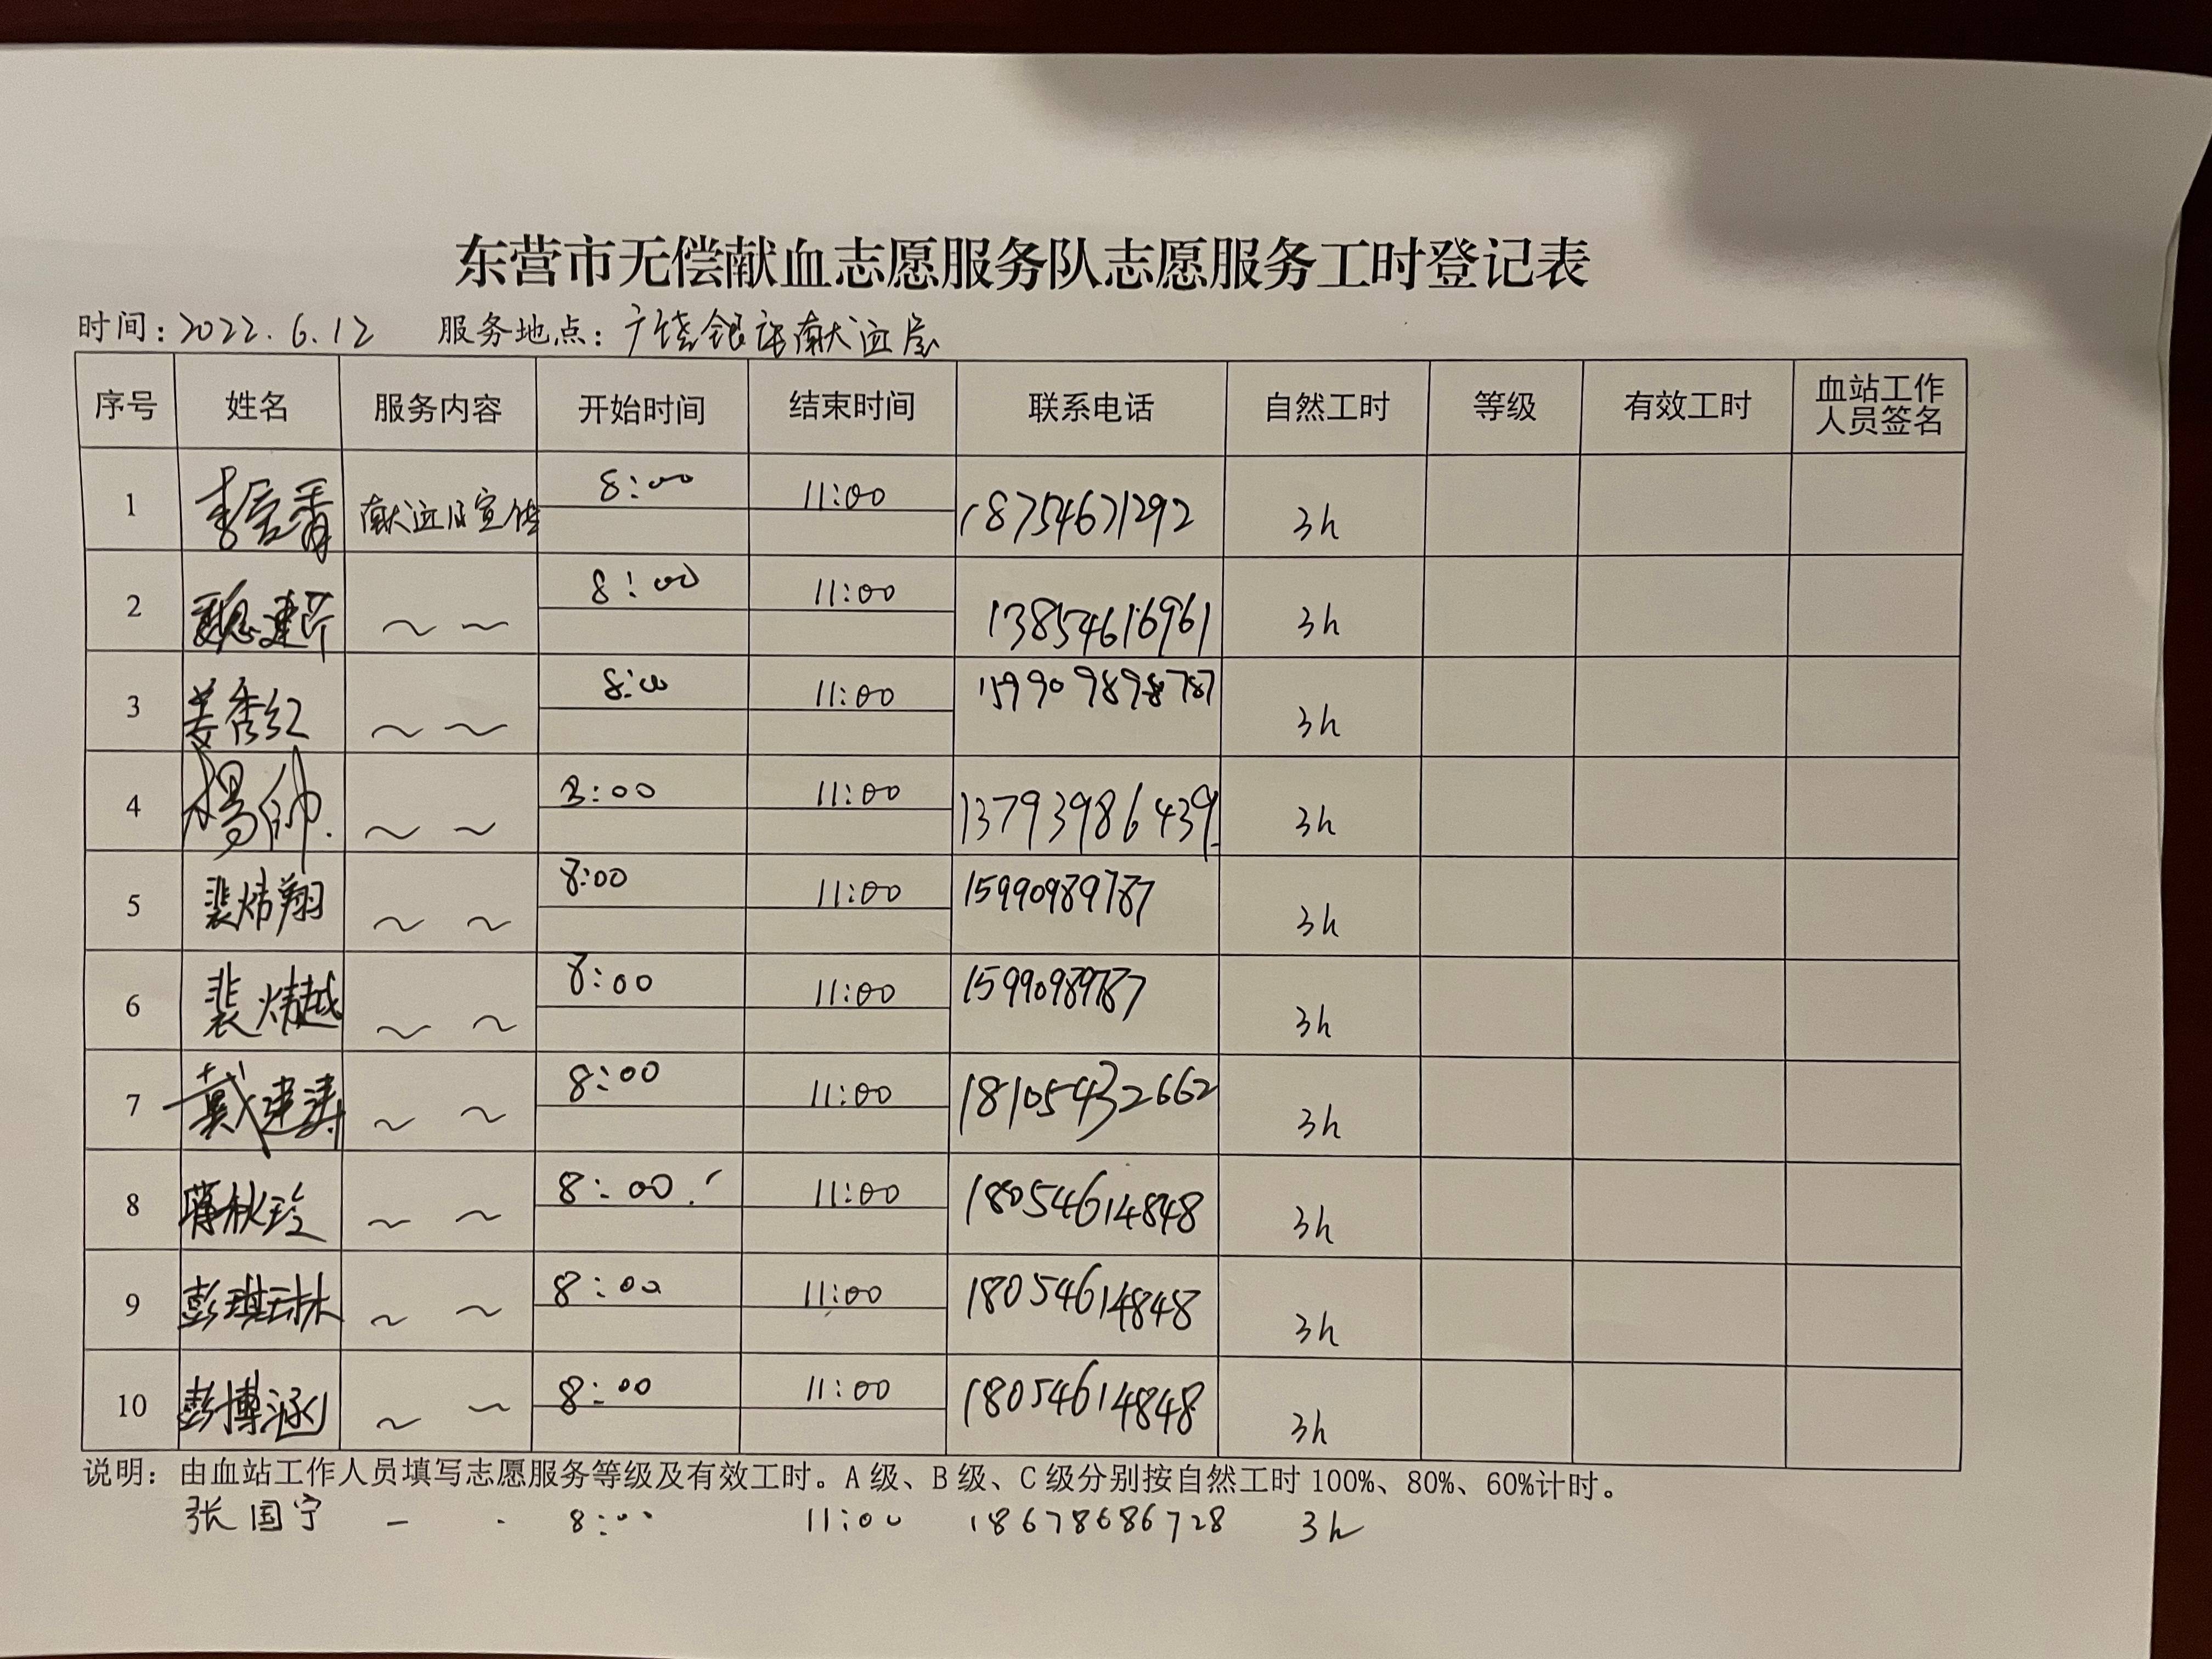 东营市无偿献血志愿服务队志愿服务工时登记表
时间:2022.6.12 服务地点:广饶银座献血屋
序号 姓名 服务内容 开始时间 结束时间 联系电话 自然工时 等级 有效工时 血站工作人员签名
1 献血日宣传 8:00 11:00 18754671292 3h
2 魏建芹 ~ ~ 8:00 11:00 13854616961 3h
3 姜秀红 ~ ~ 8:00 11:00 3h
4 杨帅. ~ ~ 8:00 11:00 13793986439 3h
5 裴炜翔 ~ ~ 8:00 11:00 15990989787 3h
6 裴炜越 ~ ~ 8:00 11:00 15990989787 3h
7 戴建涛 ~ ~ 8:00 11:00 18105432662 3h
8 蒋秋玲 ~ ~ 8:00 11:00 18054614848 3h
9 彭琪林 ~ ~ 8:00 11:00 18054614848 3h
10 彭博涵 ~ ~ 8:00 11:00 18054614848 3h
说明:由血站工作人员填写志愿服务等级及有效工时。A级、B级、C级分别按自然工时100%、80%、60%计时。
张国宁 8:00 11:00 18678686728 3h